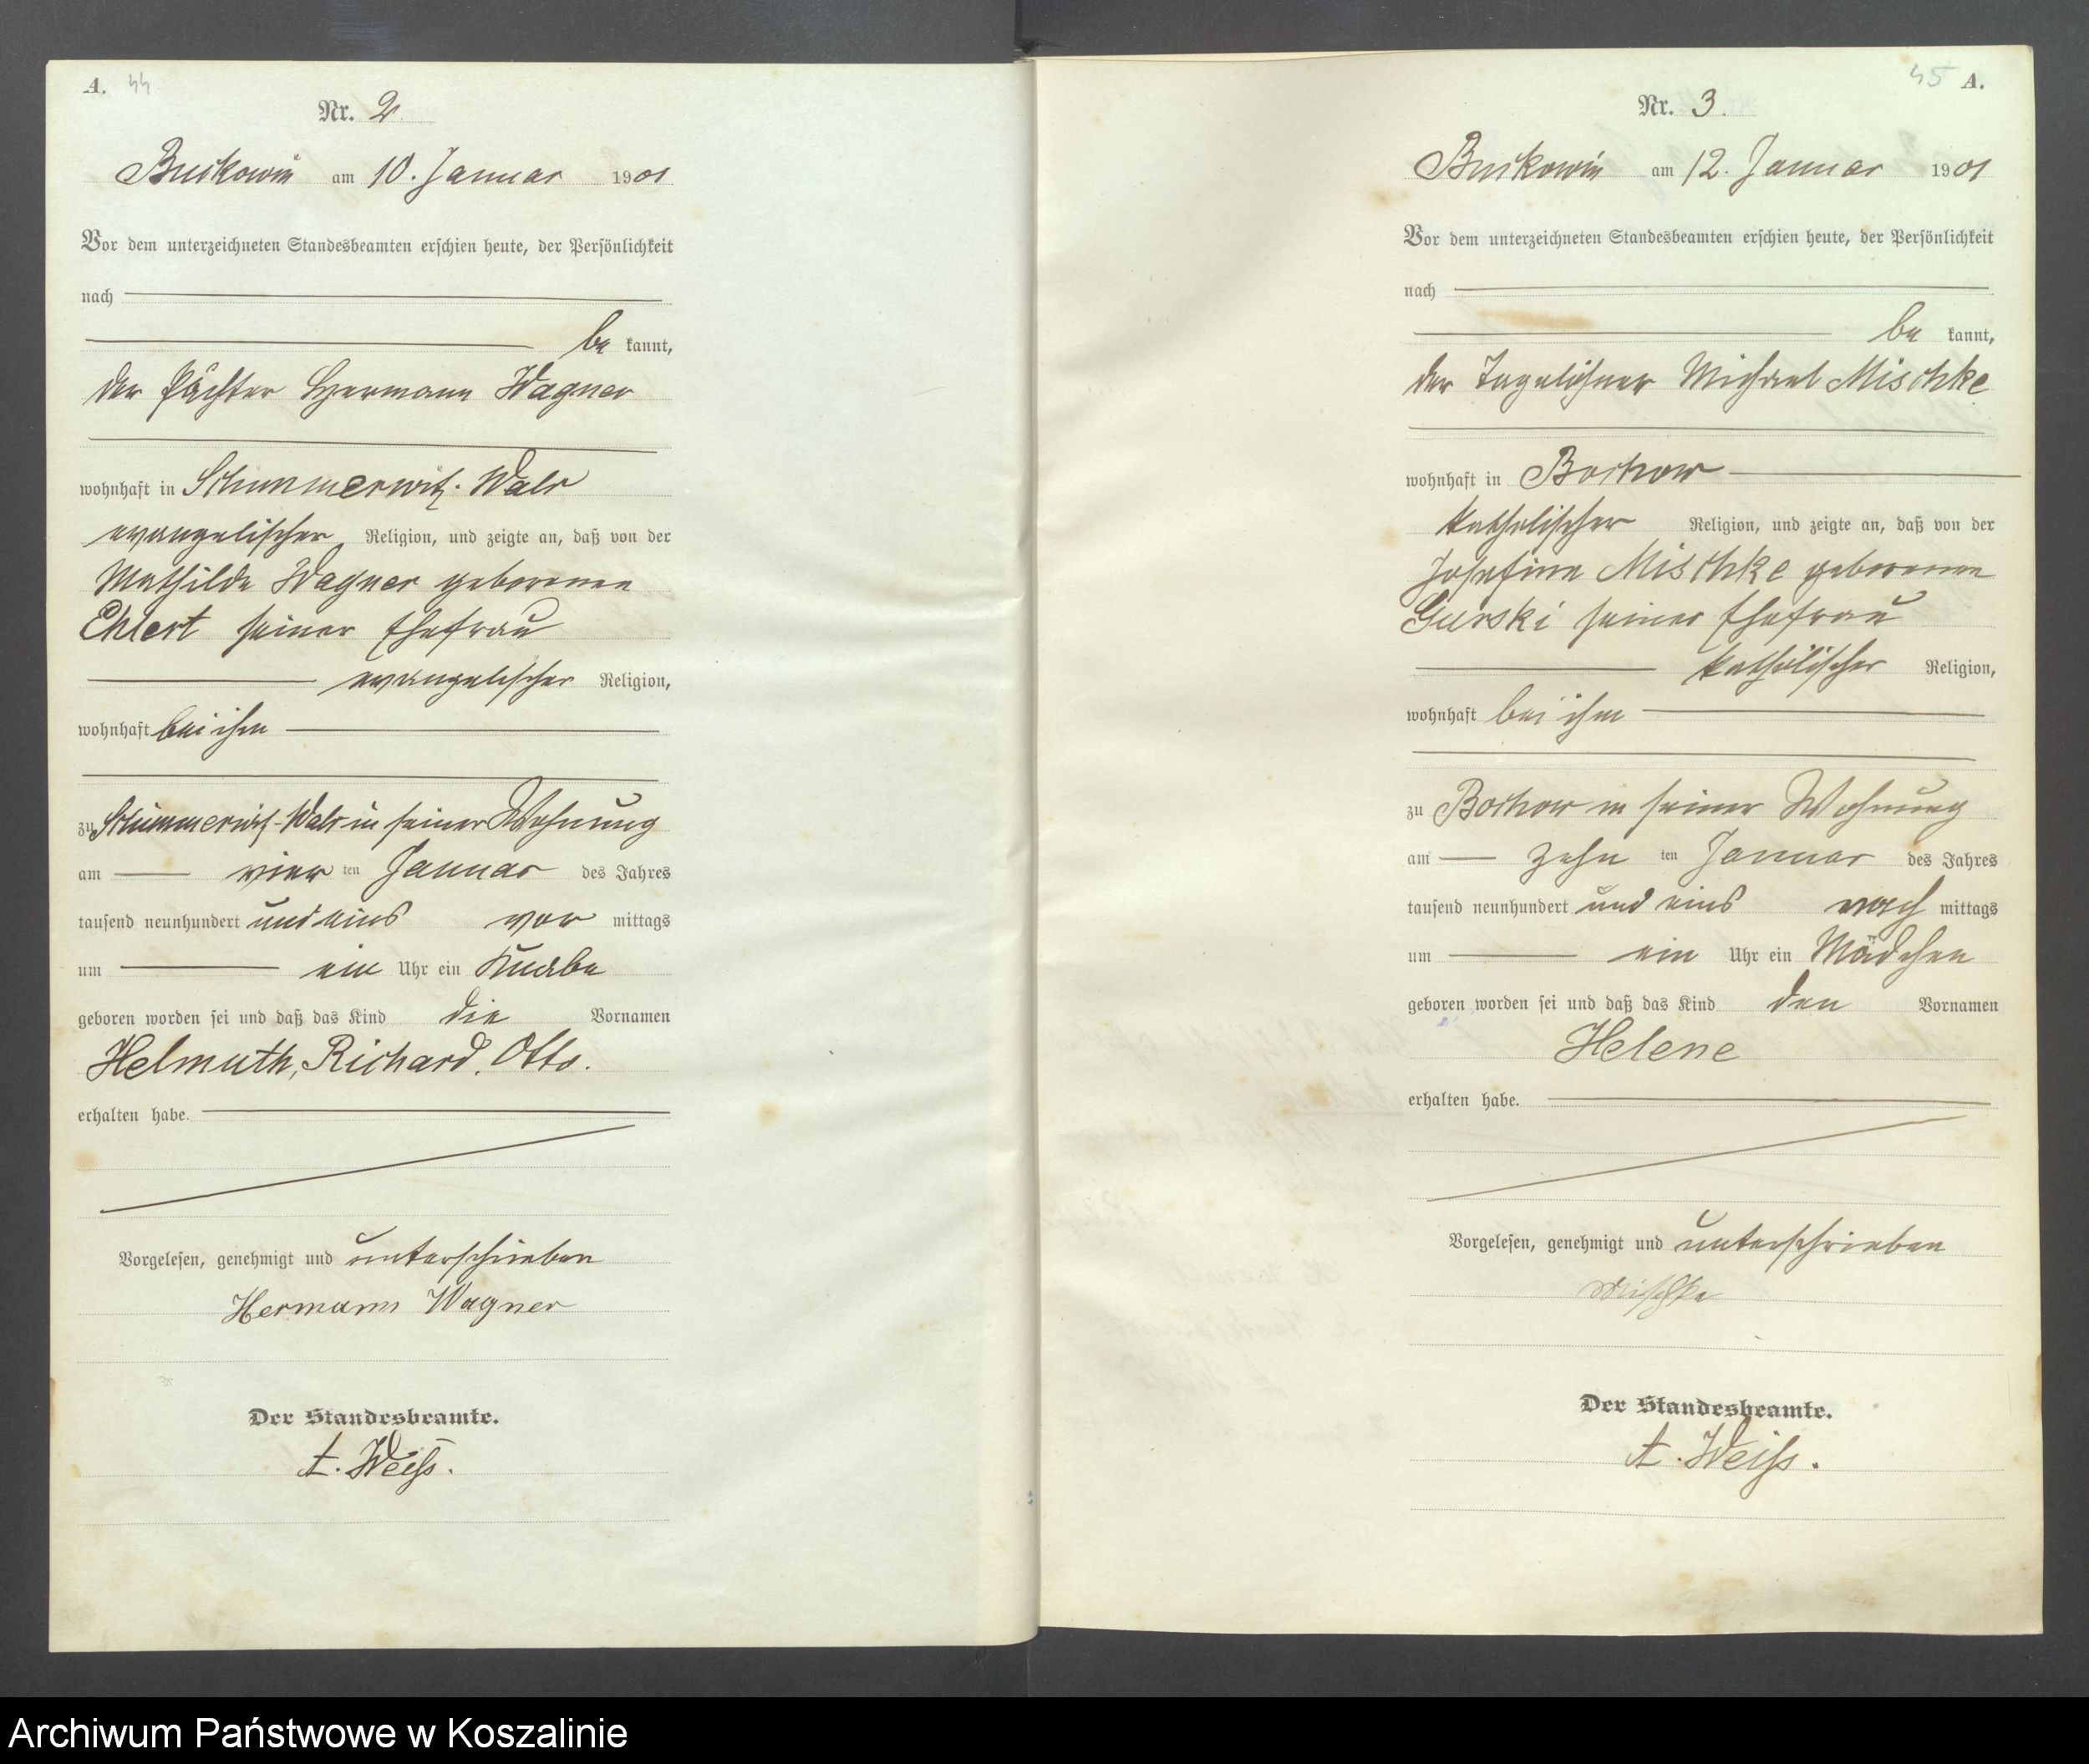 A. 44
Nr. 2.
Buckowin am 10. Januar 1901
Vor dem unterzeichneten Standesbeamten erschien heute, der Persönlichkeit
nach
be kannt,
der Pächter Hermann Wagner
wohnhaft in Schimmerwitz-Wald
evangelischer Religion, und zeigte an, daß von der
Mathilde Wagner geborenen
Ehlert seiner Ehefrau
evangelischer Religion,
wohnhaft bei ihm
zu Schimmerwitz-Wald in seiner Wohnung
am vier ten Januar des Jahres
tausend neunhundert und eins vor mittags
um ein Uhr ein Knabe
geboren worden sei und daß das Kind die Vornamen
Helmuth, Richard, Otto.
erhalten habe.
Vorgelesen, genehmigt und unterschrieben
Hermann Wagner
Der Standesbeamte.
A. Weiß.
45 A.
Nr. 3.
Buckowin am 12. Januar 1901
Vor dem unterzeichneten Standesbeamten erschien heute, der Persönlichkeit
nach
be kannt,
der Tagelöhner Michael Mischke
wohnhaft in Bochow
katholischer Religion, und zeigte an, daß von der
Josefine Mischke geborenen
Gurski seiner Ehefrau
katholischer Religion,
wohnhaft bei ihm
zu Bochow in seiner Wohnung
am zehn ten Januar des Jahres
tausend neunhundert und eins nach mittags
um ein Uhr ein Mädchen
geboren worden sei und daß das Kind den Vornamen
Helene
erhalten habe.
Vorgelesen, genehmigt und unterschrieben
Mischke
Der Standesbeamte.
A. Weiß.
Archiwum Państwowe w Koszalinie